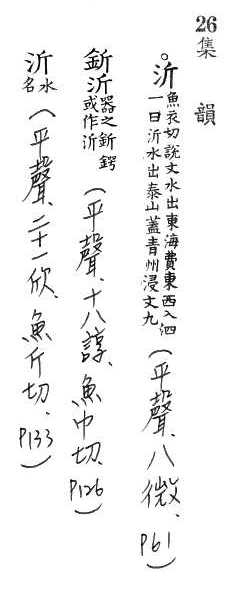 26 集韻
。沂魚衣切說文水出東海費東西入泗一曰沂水出泰山蓋青州浸文九（平聲、八微、P61）
釿沂器之釿鍔或作沂（平聲、十八諄、魚巾切、P126）
沂水名（平聲、二十一欣、魚斤切、P133）